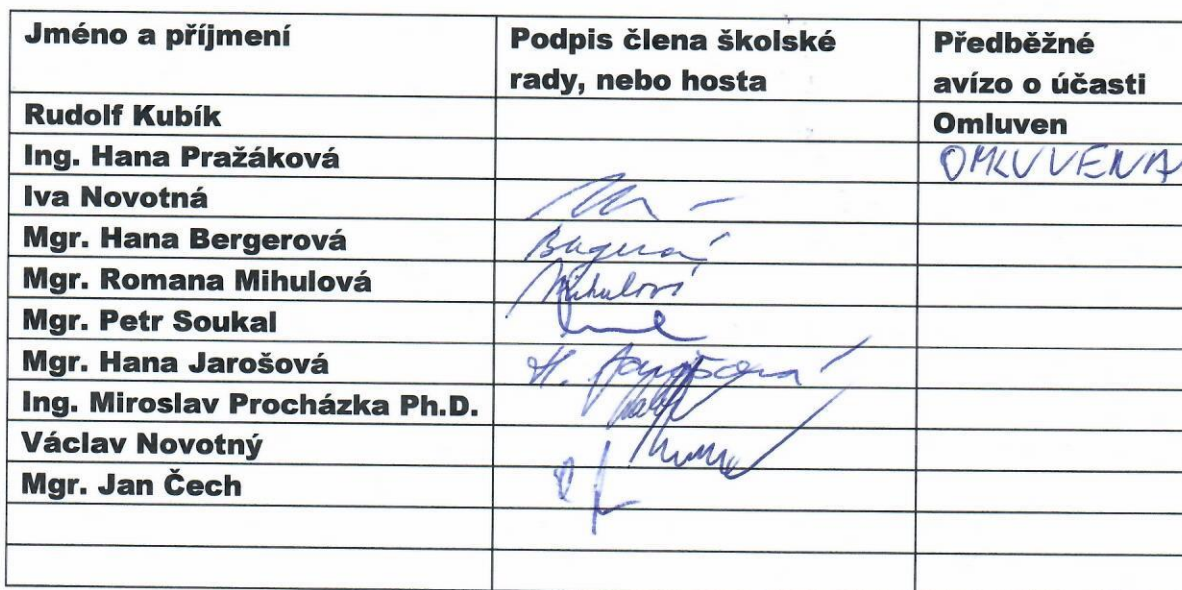 Jméno a příjmení
Podpis člena školské
rady, nebo hosta
Předběžné
avízo o účasti
Rudolf Kubík Omluven
Ing. Hana Pražáková OMLUVENA
Iva Novotná
Mgr. Hana Bergerová
Mgr. Romana Mihulová Mihulová
Mgr. Petr Soukal
Mgr. Hana Jarošová H. Jarošová
Ing. Miroslav Procházka Ph.D.
Václav Novotný
Mgr. Jan Čech